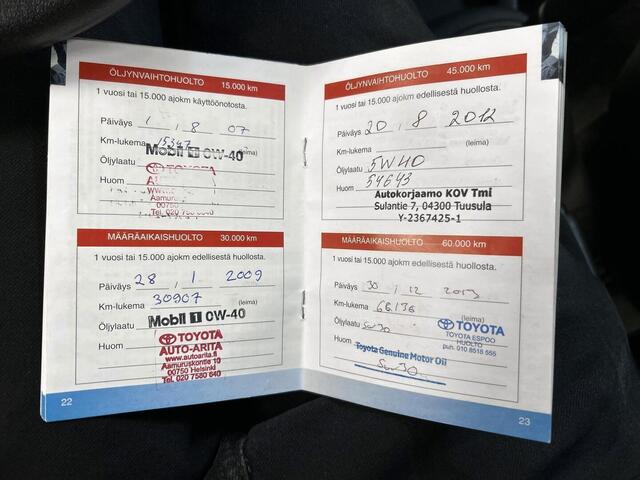 ÖLJYNVAIHTOHUOLTO 15.000 km
1 vuosi tai 15.000 ajokm käyttöönotosta.
Päiväys 1 , 8 07
Km-lukema 15347 (leima)
Mobil 1 0W-40
Öljylaatu
TOYOTA
Huom
Aamuruskontie
00750
Tel. 020
MÄÄRÄAIKAISHUOLTO 30.000 km
1 vuosi tai 15.000 ajokm edellisestä huollosta.
Päiväys 28 , 1 2009
Km-lukema 30907 (leima)
Öljylaatu Mobil 1 0W-40
Huom
TOYOTA
AUTO-ARITA
www.autoarita.fi
Aamuruskontie 10
00750 Helsinki
Tel. 020 7580 640
22
ÖLJYNVAIHTOHUOLTO 45.000 km
1 vuosi tai 15.000 ajokm edellisestä huollosta.
Päiväys 20 , 8 2012
Km-lukema (leima)
Öljylaatu 5W40
Huom 54643
Autokorjaamo KOV Tmi
Sulantie 7, 04300 Tuusula
Y-2367425-1
MÄÄRÄAIKAISHUOLTO 60.000 km
1 vuosi tai 15.000 ajokm edellisestä huollosta.
Päiväys 30 , 12 2013
Km-lukema 66.136 (leima)
Öljylaatu 5w30
TOYOTA
TOYOTA ESPOO
HUOLTO
puh. 010 8518 555
Huom Toyota Genuine Motor Oil
5w30
23